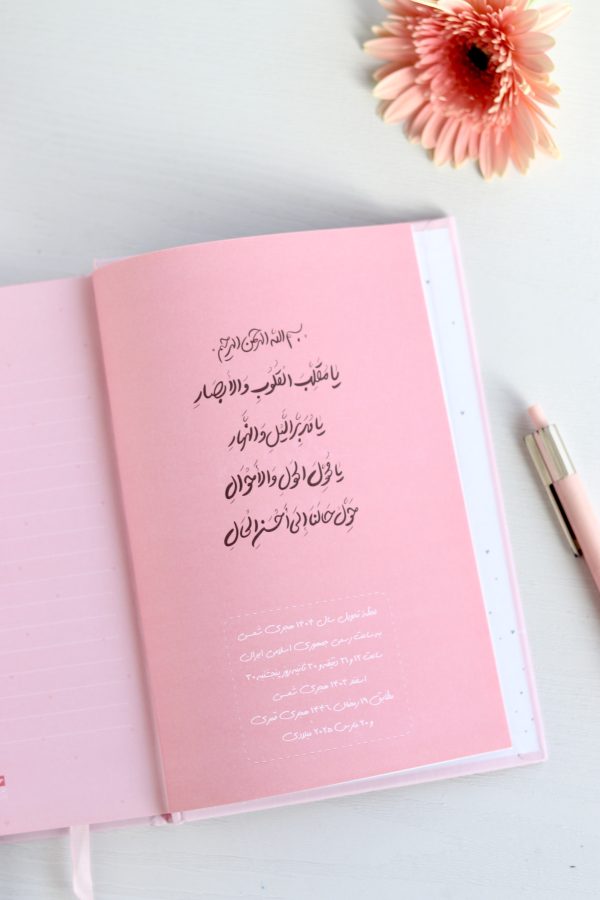 بسم الله الرحمن الرحیم
یا مُقَلِّبَ القُلُوبِ وَالأَبصَارِ
یا مُدَبِّرَ الَّیلِ وَالنَّهارِ
یا مُحَوِّلَ الحَولِ وَالأَحْوَالِ
حَوِّلْ حَالَنَا إِلَی أَحْسَنِ الْحَالِ
لحظه تحویل سال ۱۴۰۴ هجری شمسی
به ساعت رسمی جمهوری اسلامی ایران
ساعت ۱۲ و ۳۱ دقیقه و ۳۰ ثانیه روز پنجشنبه ۳۰
اسفند ۱۴۰۳ هجری شمسی
مطابق ۱۹ رمضان ۱۴۴۶ هجری قمری
و ۲۰ مارس ۲۰۲۵ میلادی